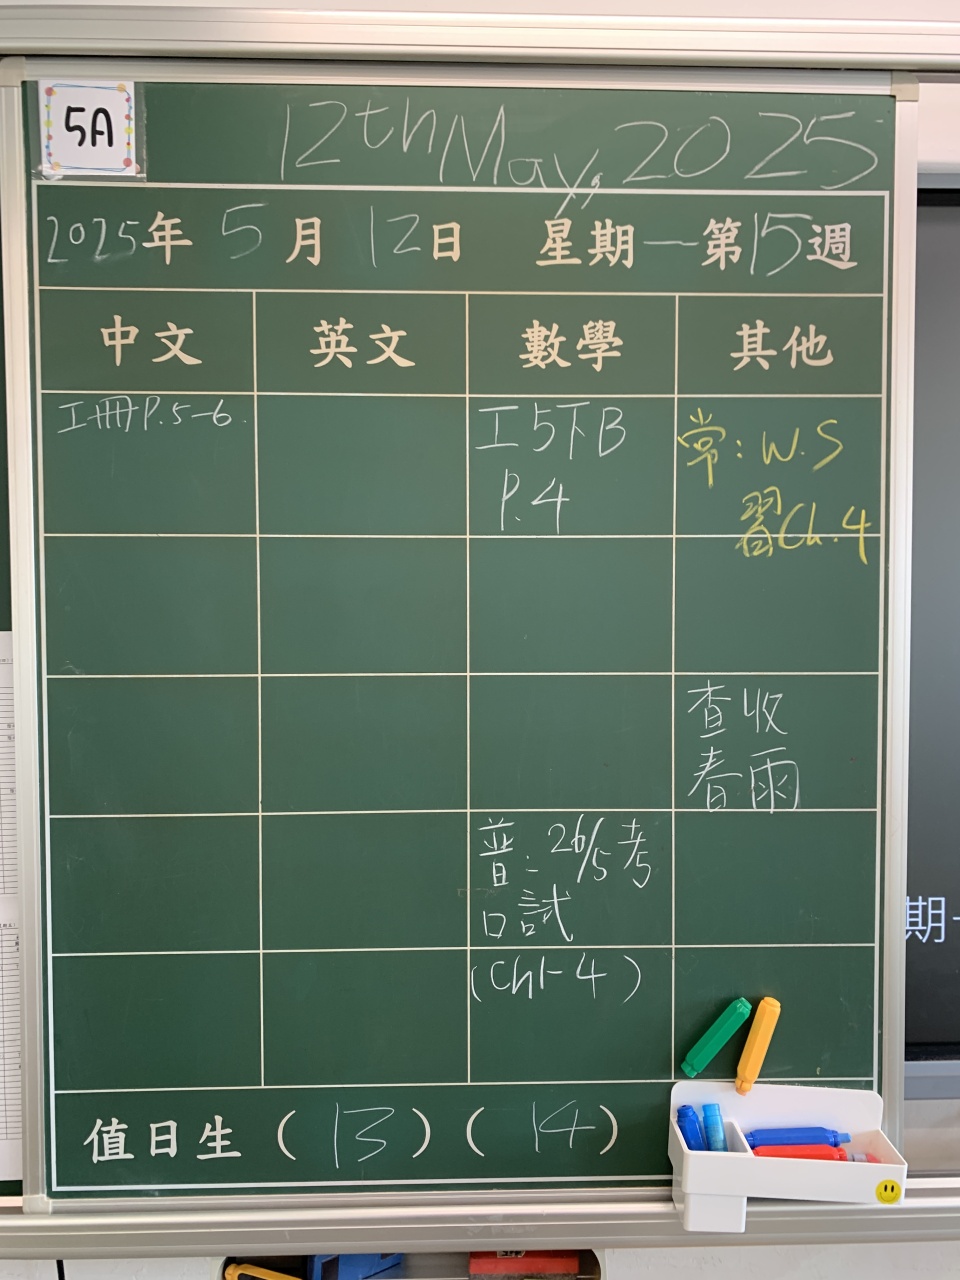 5A
12th May, 2025
2025年 5月 12日 星期一 第15週
中文 英文 數學 其他
工冊P.5-6.
工5下B
P.4
常：W.S
習Ch.4
查收
春雨
普：26/5考
口試
(Ch1-4)
值日生 (13) (14)
期一